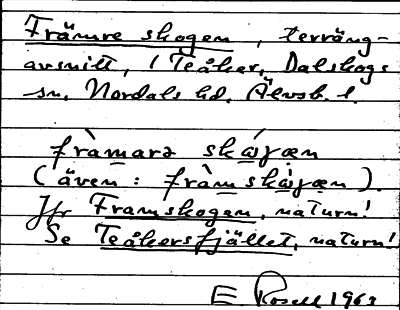 Främre skogen, terräng-
avsnitt, i Teåker, Dalskogs
sn, Nordals hd, Älvsb. l.
fràmarə skǡ́γœn
(även: fràmskǡ̀γœn).
Jfr Framskogen, naturn!
Se Teåkersfjället, naturn!
E. Rosell 1963